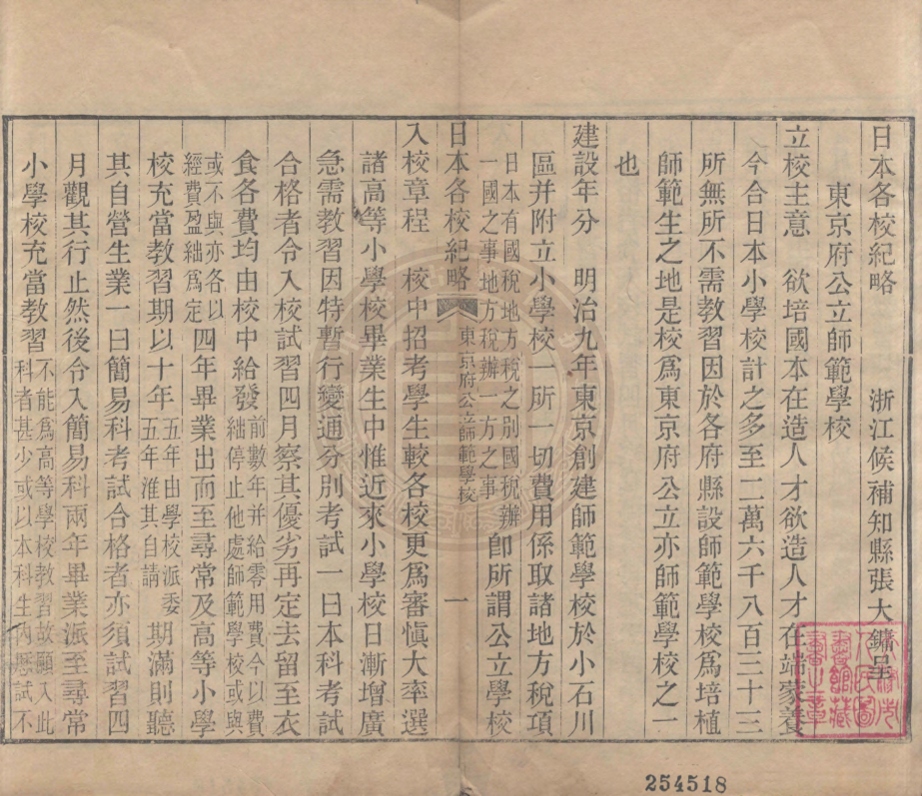 日本各校紀略　浙江候補知縣張大鏞呈
東京府公立師範學校
立校主意　欲培國本在造人才欲造人才在端蒙養
今合日本小學校計之多至二萬六千八百三十三
所無所不需教習因於各府縣設師範學校爲培植
師範生之地是校爲東京府公立亦師範學校之一
也
建設年分　明治九年東京創建師範學校於小石川
區并附立小學校一所一切費用係取諸地方稅項
日本有國稅地方稅之別國稅辦
一國之事地方稅辦一方之事
卽所謂公立學校
日本各校紀略　東京府公立師範學校　一
入校章程　校中招考學生較各校更爲審愼大率選
諸高等小學校畢業生中惟近來小學校日漸增廣
急需教習因特暫行變通分別考試一曰本科考試
合格者令入校試習四月察其優劣再定去留至衣
食各費均由校中給發
前數年并給零用費今以費
絀停止他處師範學校或與
或不與亦各以
經費盈絀爲定
四年畢業出而至尋常及高等小學
校充當教習期以十年
五年由學校派委
五年淮其自請
期滿則聽
其自營生業一曰簡易科考試合格者亦須試習四
月觀其行止然後令入簡易科兩年畢業派至尋常
小學校充當教習
不能爲高等學校教習故願入此
科者甚少或以本科生內懸試不
254518